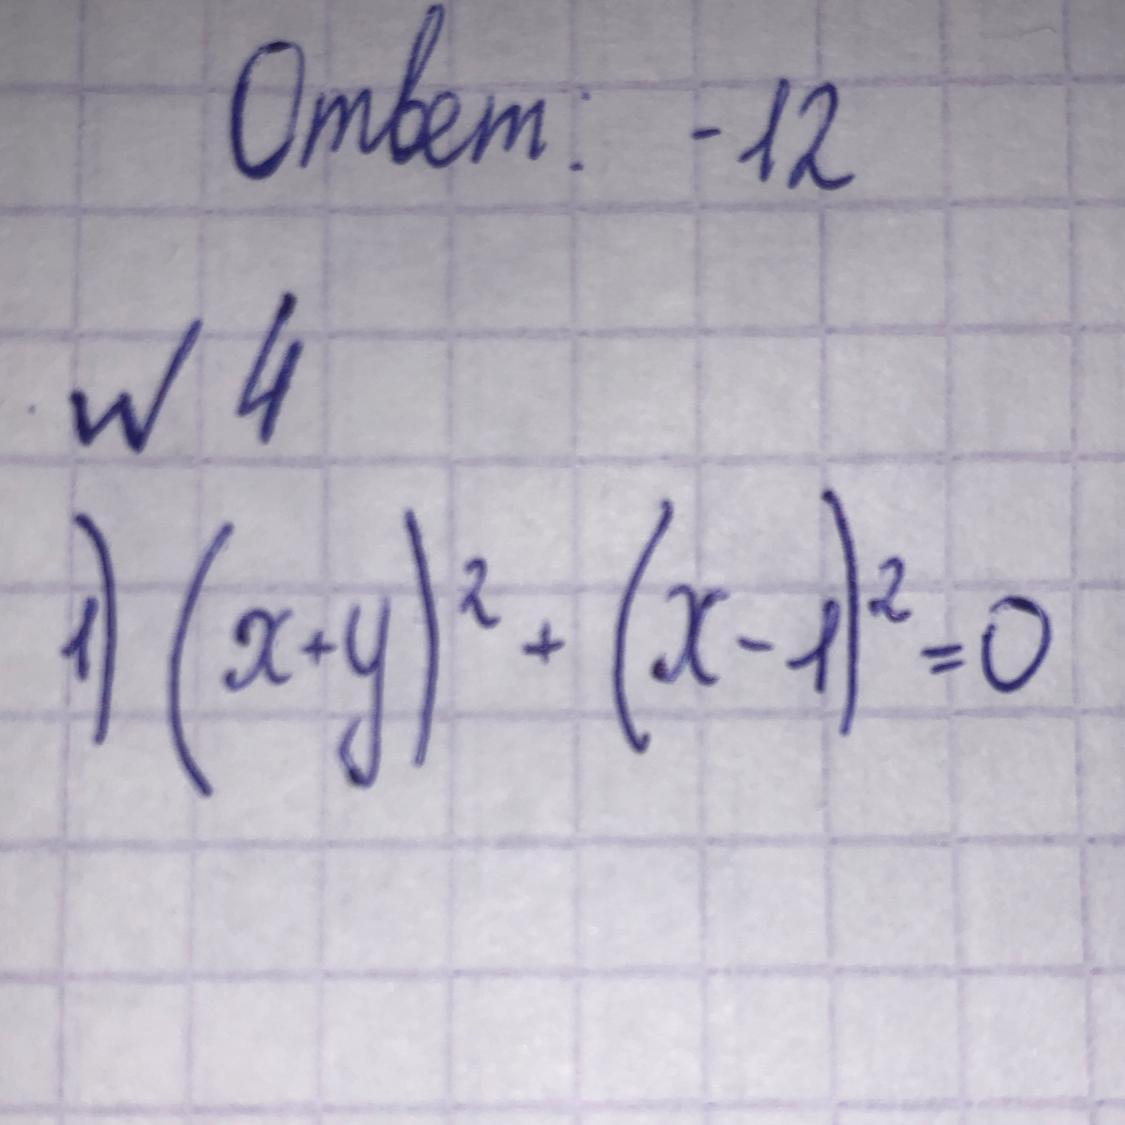 Ответ: -12
№ 4
1) (x+y)² + (x-1)² = 0